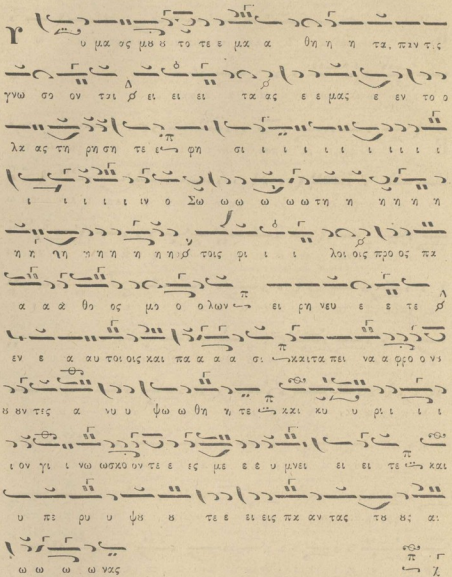 υ μα ας μου ου το τε ε μα α θη η η τα, παν τες
γνω σο ον ται ει ει ει τα ας ε ε μας ε εν το ο
λα ας τη ρη ση τε ει φη σι ι ι ι ι ι ι ι ι
ι ι ι ι ι ιν ο Σω ω ω ω ω ω τη η η η η η
η η η η η η η η η τοις ρι ι ι λοι οις προ ος πα
α α α θο ος μο ο ο λων ει ρη νευ ε ε τε
εν ε α αυ τοι οις και πα α α α σι και τα πει να α φρο ο νου
ου ουν τες α νυ υ ψω ω θη η τε και κυ υ ρι ι ι
ι ον γι ι νω ωσκο ον τε ε ες με ε ε υ μνει ει ει τε και
υ πε ρυ υ ψου ου τε ε ει εις πα αν τας του ους αι
ω ω ω ω νας